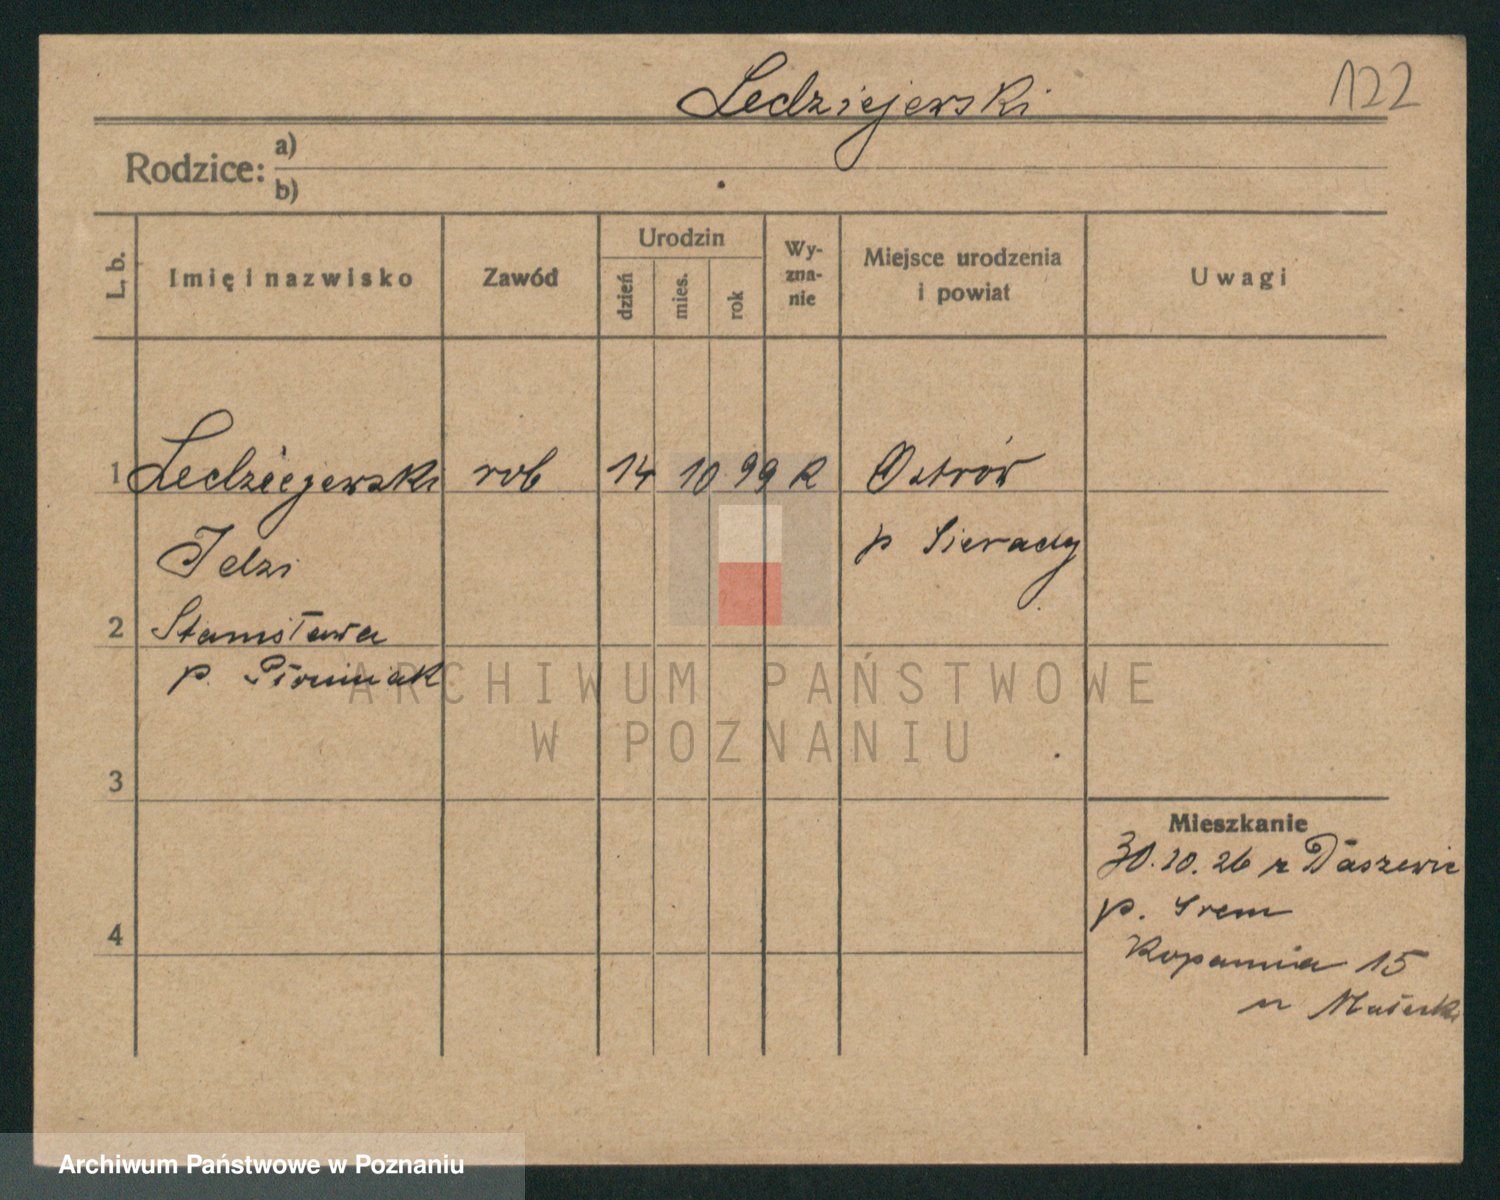 Ledziejewski
122
Rodzice: a)
b)
L. b.
Imię i nazwisko
Zawód
Urodzin
dzień
mies.
rok
Wy-
zna-
nie
Miejsce urodzenia
i powiat
Uwagi
1 Ledziejewski rob 14 10 99 R Ostrów
Idzi p Sierady
2 Stanisława
p.
ARCHIWUM PAŃSTWOWE
W POZNANIU
3
Mieszkanie
30.10.26 z Daszewic
p. Srem
4
Kopania 15
u
Archiwum Państwowe w Poznaniu